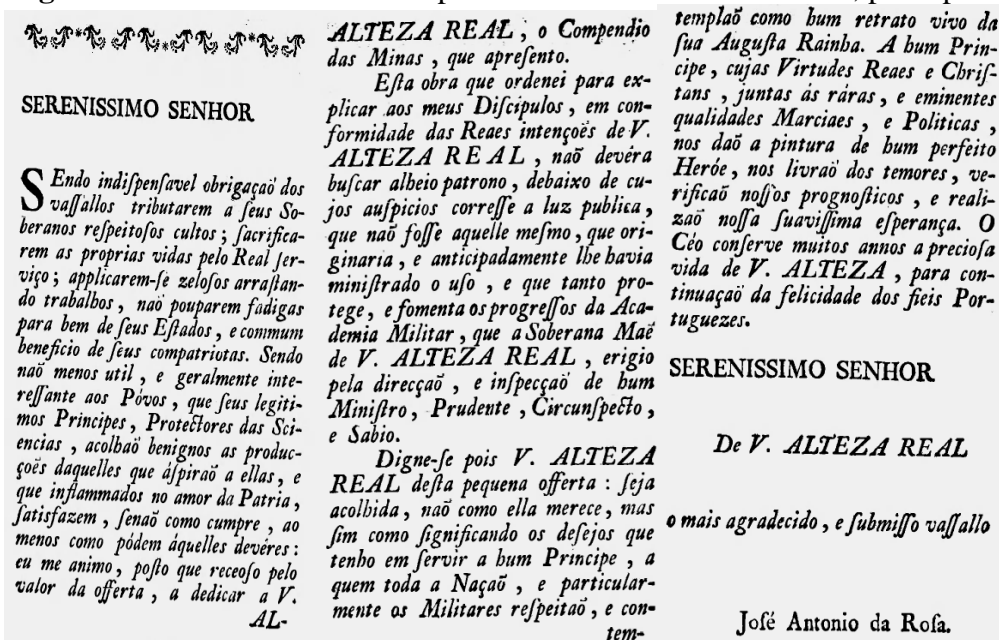 SERENISSIMO SENHOR
SEndo indiſpenſavel obrigaçaõ dos
vaſſallos tributarem a ſeus So-
beranos reſpeitoſos cultos ; ſacrifica-
rem as proprias vidas pelo Real ſer-
viço ; applicarem-ſe zeloſos arraſtan-
do trabalhos , naõ pouparem fadigas
para bem de ſeus Eſtados , e commum
beneficio de ſeus compatriotas. Sendo
naõ menos util , e geralmente inte-
reſſante aos Póvos , que ſeus legiti-
mos Principes , Protectores das Sci-
encias , acolhaõ benignos as produc-
çoẽs daquelles que áſpiraõ a ellas , e
que inflammados no amor da Patria ,
ſatisfazem , ſenaõ como cumpre , ao
menos como pódem áquelles devéres :
eu me animo , poſto que receoſo pelo
valor da offerta , a dedicar a V.
AL-
ALTEZA REAL ; o Compendio
das Minas , que apreſento.
Eſta obra que ordenei para ex-
plicar aos meus Diſcipulos , em con-
formidade das Reaes intençoẽs de V.
ALTEZA REAL , naõ devéra
buſcar alheio patrono , debaixo de cu-
jos auſpicios correſſe a luz publica ,
que naõ foſſe aquelle meſmo , que ori-
ginaria , e anticipadamente lhe havia
miniſtrado o uſo , e que tanto pro-
tege , e fomenta os progreſſos da Aca-
demia Militar , que a Soberana Maẽ
de V. ALTEZA REAL , erigio
pela direcçaõ , e inſpecçaõ de hum
Miniſtro , Prudente , Circunſpecto ,
e Sabio.
Digne-ſe pois V. ALTEZA
REAL deſta pequena offerta : ſeja
acolhida , naõ como ella merece , mas
ſim como ſignificando os deſejos que
tenho em ſervir a hum Principe , a
quem toda a Naçaõ , e particular-
mente os Militares reſpeitaõ , e con-
tem-
templaõ como hum retrato vivo da
ſua Auguſta Rainha. A hum Prin-
cipe , cujas Virtudes Reaes e Chriſ-
tans , juntas ás ráras , e eminentes
qualidades Marciaes , e Politicas ,
nos daõ a pintura de hum perfeito
Heróe , nos livraõ dos temores , ve-
rificaõ noſſos prognoſticos , e reali-
zaõ noſſa ſuaviſſima eſperança. O
Céo conſerve muitos annos a precioſa
vida de V. ALTEZA , para con-
tinuaçaõ da felicidade dos fieis Por-
tuguezes.
SERENISSIMO SENHOR
De V. ALTEZA REAL
o mais agradecido , e ſubmiſſo vaſſallo
Joſé Antonio da Roſa.